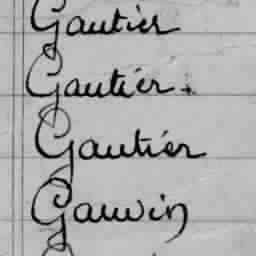 Gautier
Gautier.
Gautier
Gauvin